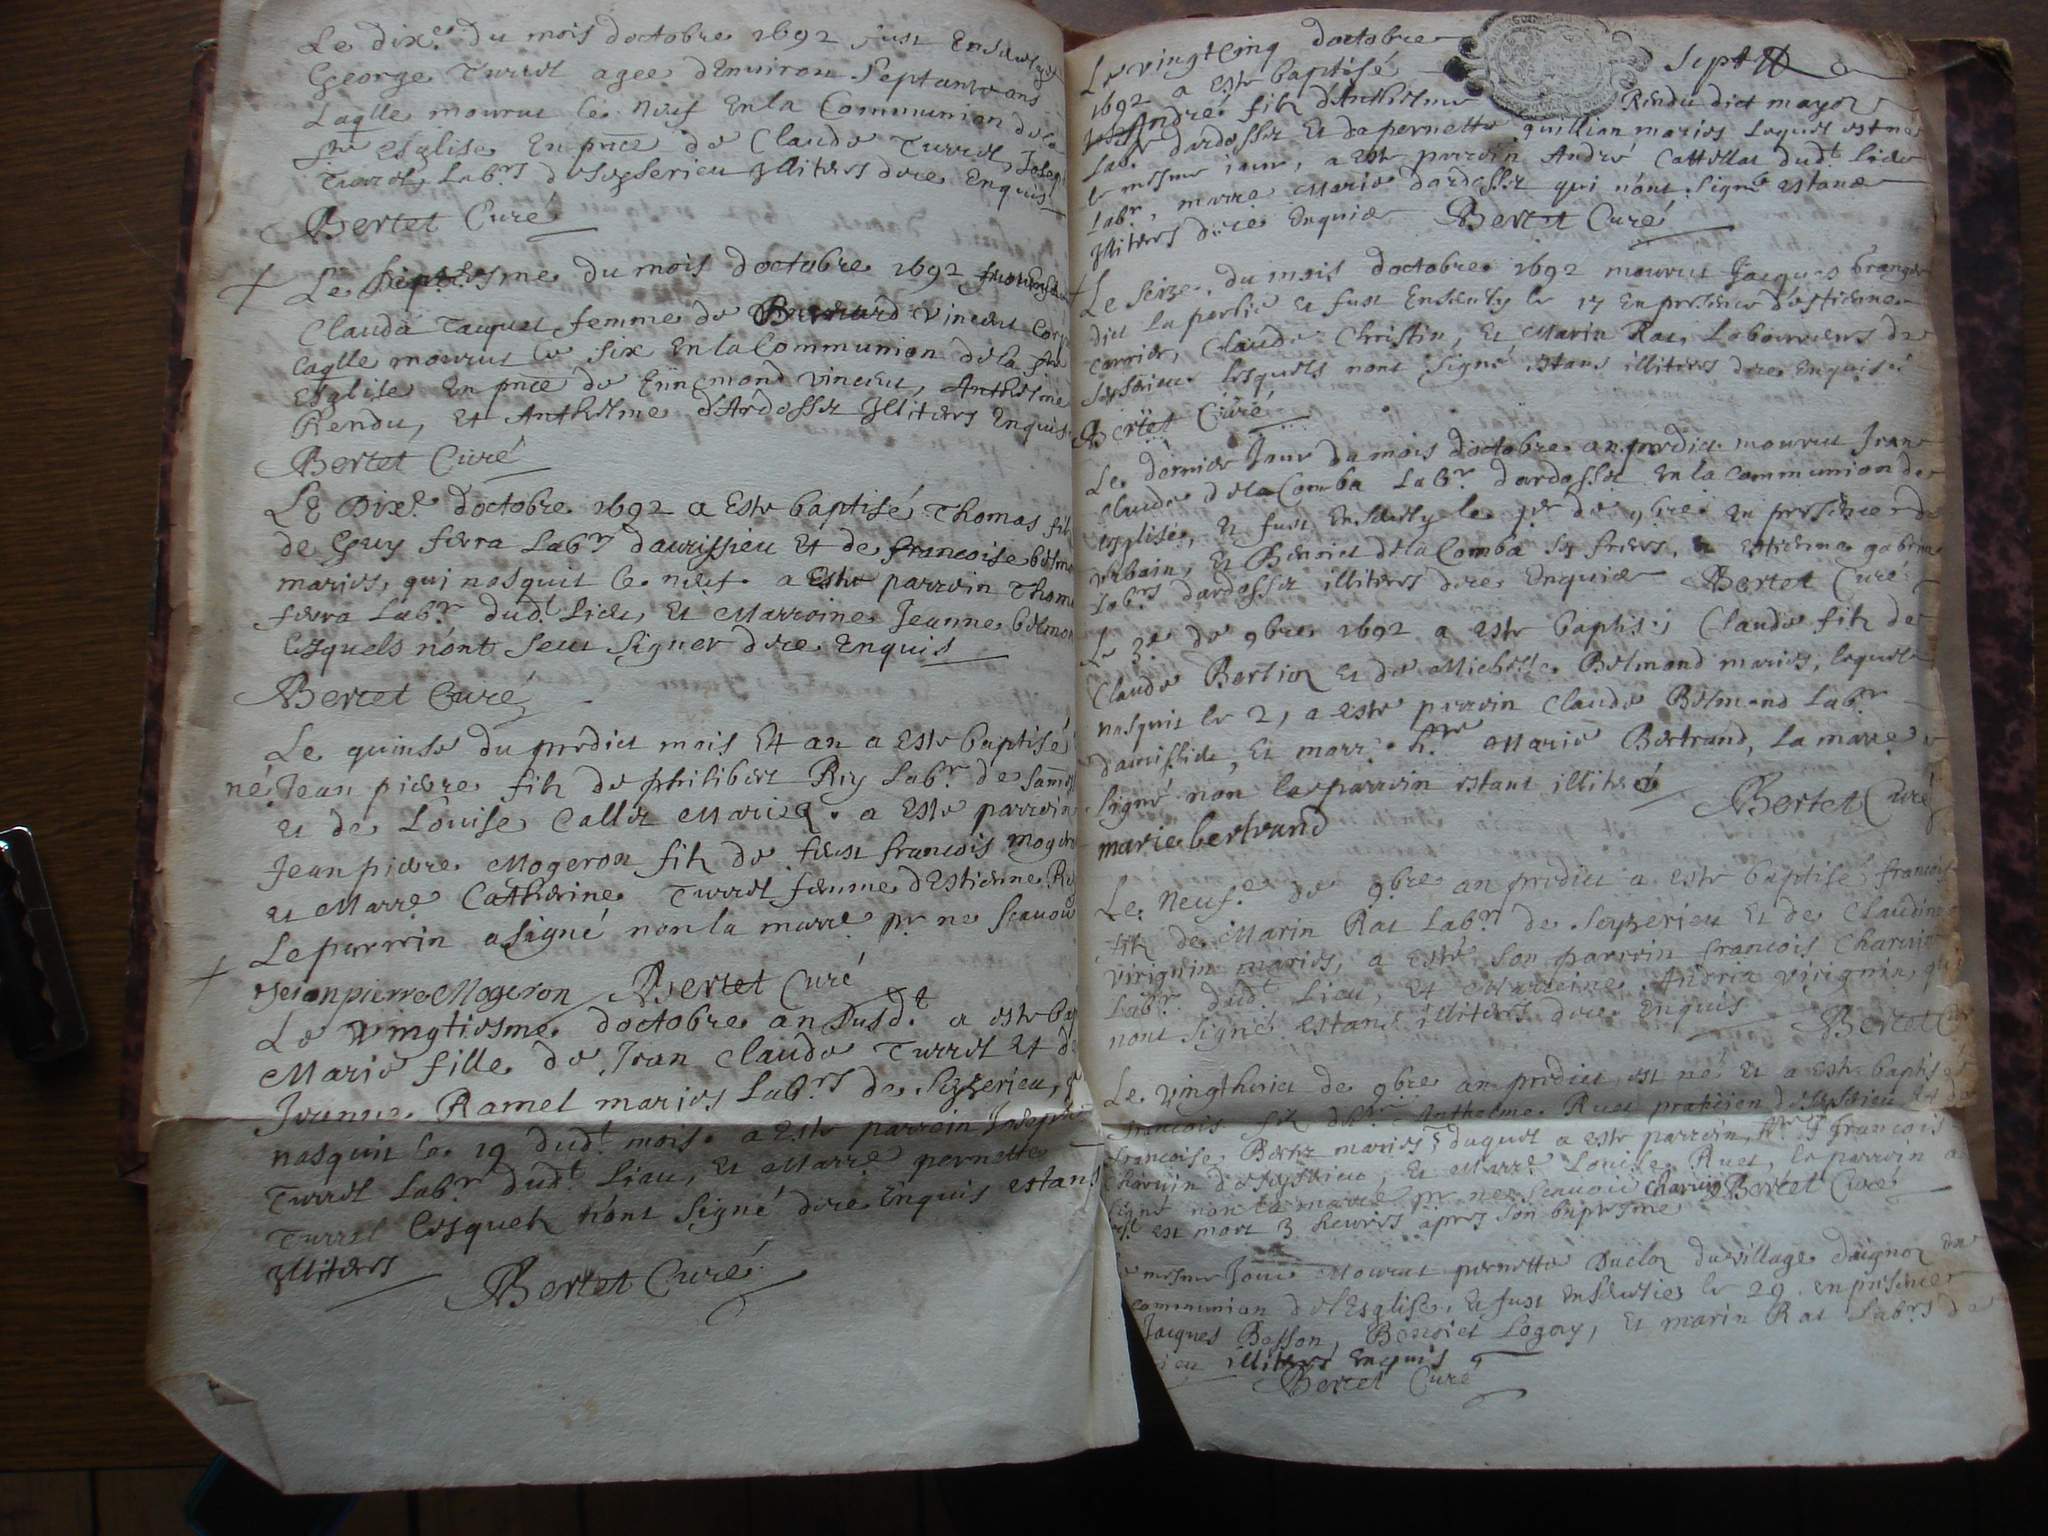 Le dixe du mois doctobre 1692 fust Enseuely
George Turrel agee denuiron Septante ans
Laqlle mourut le neuf En la Communion de la
ste esglise En pnce de Claude Turrel, Joseph
Turrel, Labrs de Seyserieu Illiters dere Enquis
Bertet Curé
Le septiesme du mois doctobre 1692
Clauda Taquet femme de Bernard Vincent
laqlle mourut le six En la Communion de la ste
Esglise En pnce de Ennemond Vincent, Anthelme
Rendu, et Anthelme d'Ardosset Illiters Enquis
Bertet Curé
LE Dixe doctobre 1692 a Este baptisé Thomas fils
de Guy ferra Labr daurissieu Et de francoise belmond
maries, qui nasquit le neuf. a Este parrein Thomas
ferra Labr dudt Lieu, Et Marreine Jeanne belmond
Lesquels n'ont seeu signer dere Enquis
Bertet Curé
Le quinse du prédict mois Et an a Este baptisé
né Jean pierre fils de philibert Rey Labr de
et de Louise Callet Maries. a Este parrein
Jean pierre Mogeron fils de feeu francois Mogeron
et Marre Catherine Turrel femme d'Estienne
Le parrein a signé non la marre pr ne scauoir
Jean pierre Mogeron Bertet Curé
Le vingtiesme doctobre an susdt a este bap
Marie fille de Jean Claude Turrel Et de
Jeanne Ramel maries Labrs de Sezzerieu,
nasquit le 19 dudt mois. a Este parrein Joseph
Turrel Labr dudt Lieu, Et Marre pernette
Turrel Lesquels n'ont signé dere Enquis estans
Illiters
Bertet Curé
Sept
Le vingtcinq doctobre
1692 a este baptisé
André fils d'Anthelme Rendu dict mayor
Labr dardosset Et da pernette quillian maries Lequel est né
le mesme iour, a Este parrein André Cattellat dudt Lieu
labr, marre Marie dardosset qui n'ont signé estans
Illiters dere Enquis Bertet Curé
Le seize du mois doctobre 1692 mourut Jacques branger
dict la perlie et fust Enseuely le 17 En presence d'estienne
Carrier, Claude Christin, et Marin Rat, Laboureurs de
Seyserieu lesquels nont signé estans illiters dere Enquis
Bertet Curé
Le dernier Jour du mois d'octobre an predict mourut Jean
Claude de la Comba Labr dardosset En la communion de
esglise, et fust Enseuely le per de 9bre En presence de
Vrbain, Et Benoict de la Comba ses freres, Estienne
Labrs dardosset illiters dere Enquis Bertet Curé
Le 3e de 9bre 1692 a este baptisé Claude fils de
Claude Bertier Et de Michelle Belmond maries, lequel
nasquit le 2, a este parrein Claude Belmond Labr
daurissieu, Et marr. Marie Bertrand, La marre a
signé non le parrein estant illiteré
Bertet Curé
marie bertrand
Le Neufe de 9bre an predict a este baptisé francois
fils de Marin Rat Labr de Seyzerieu Et de Claudine
virignin maries, a este son parrein francois Charuin
Labr dudt Lieu, Et Marreine Andria virignin, qui
nont signé Estans illiters dere Enquis Bertet Curé
Le vingthuict de 9bre an predict est né Et a este baptisé
francois fils de Anthelme Ruet praticien de Seysieu Et de
francoise maries, duquel a este parrein francois
Charuin de Seysrieu, Et Marre Louise Ruet, le parrein a
signé non la marre pr ne scauoir Charuin Bertet Curé
est mort 3 heures apres son baptesme
mesme Jour Mourut pernette Duclos du village daignoz
communion de l'Esglise, Et fust Enseuelie le 29 en presence
Jacques Besson, Benoict Logoy, Et marin Rat Labrs de
illiters Enquis
Bertet Curé